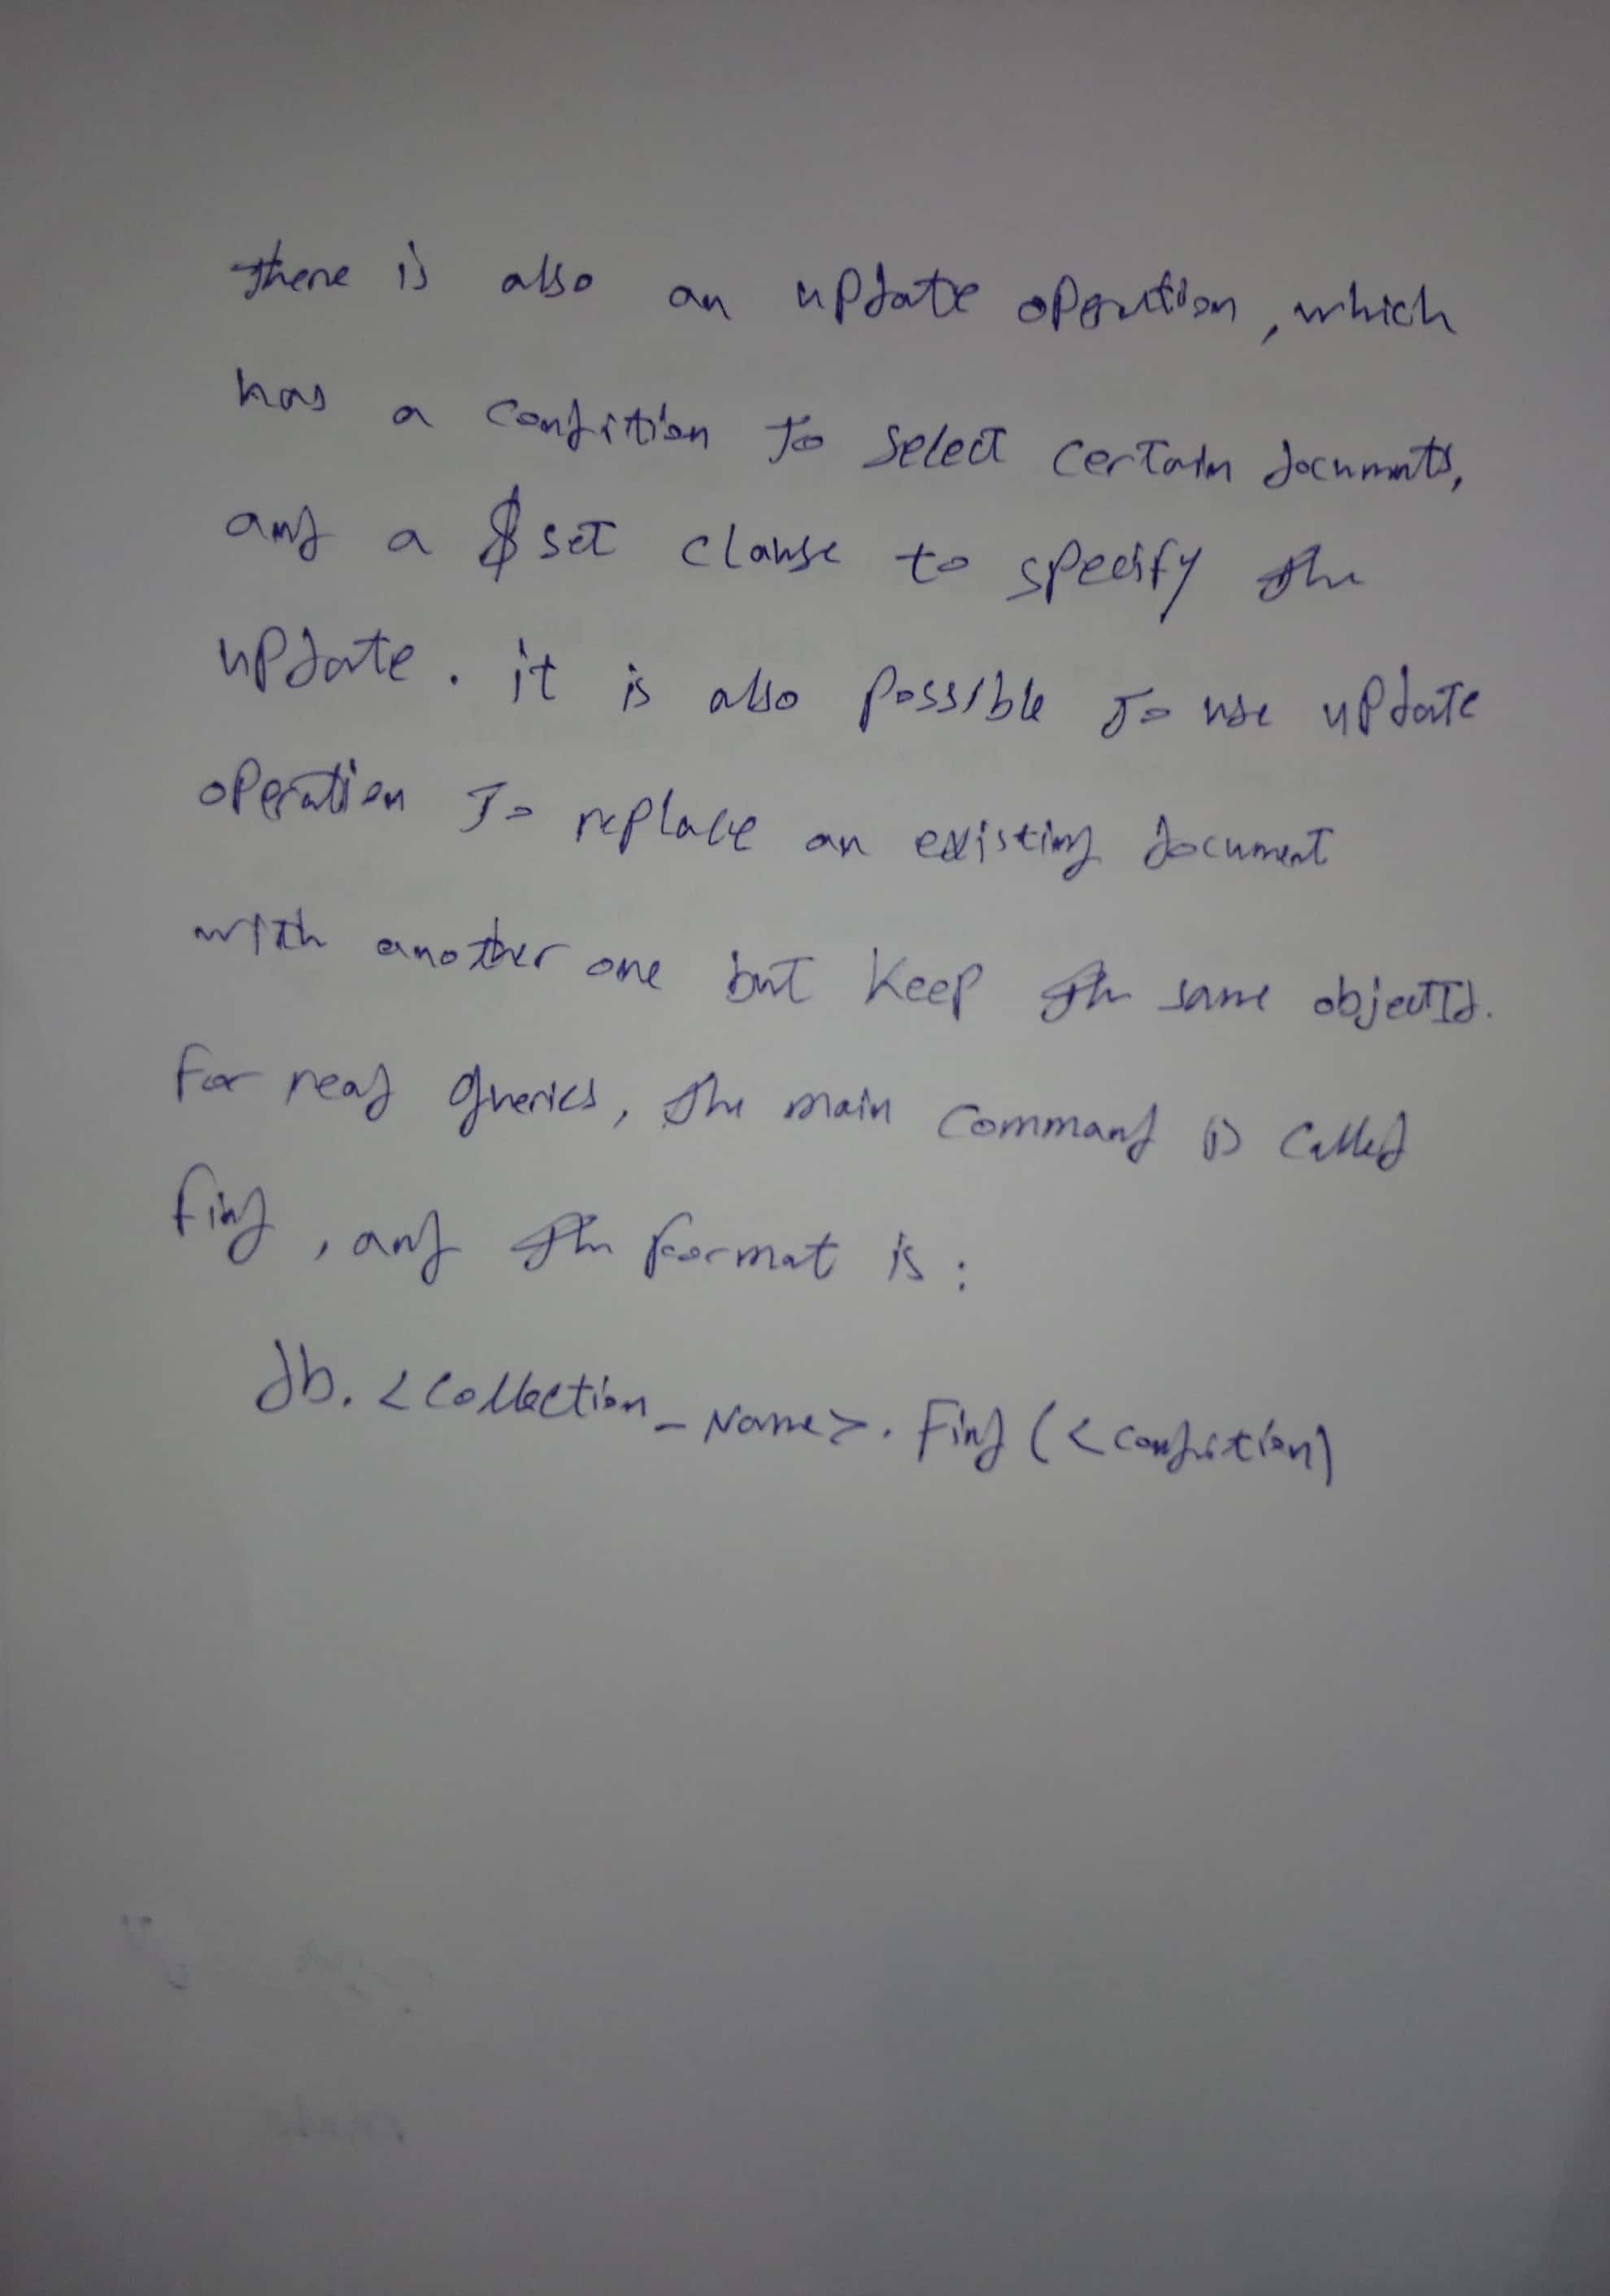 there is also an update operation, which
has a condition to select certain documents,
and a $set clause to specify the
update. it is also possible to use update
operation to replace an existing document
with another one but keep the same objectId.
For read queries, the main command is called
find, and the format is:
db.<collection_Name>.Find(<condition)